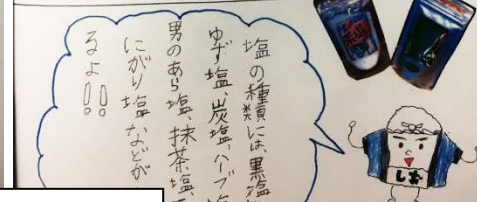 塩の種類には、黒塩
ゆず塩、炭塩、ハーブ塩
男のあら塩、抹茶塩、
にがり塩などが
るよ!!
しお